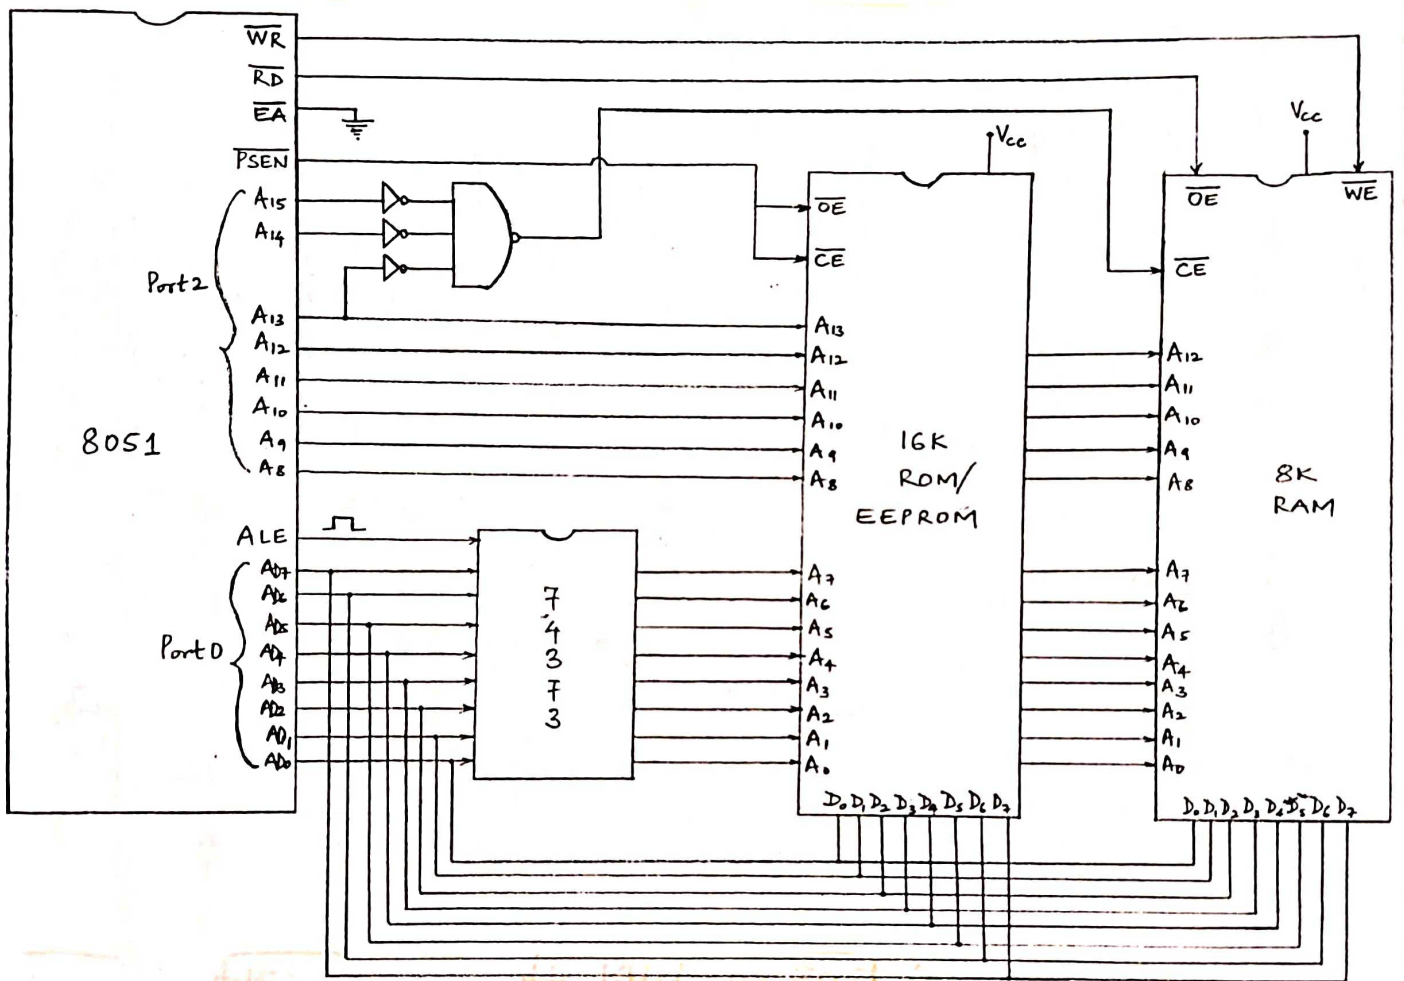 WR
RD
EA
PSEN
A15
A14
Port 2
A13
A12
A11
A10
A9
A8
8051
ALE
AD7
AD6
AD5
AD4
AD3
AD2
AD1
AD0
Port 0
7
4
3
7
3
Vcc
OE
CE
A13
A12
A11
A10
A9
A8
16K
ROM/
EEPROM
A7
A6
A5
A4
A3
A2
A1
A0
D0 D1 D2 D3 D4 D5 D6 D7
Vcc
OE
WE
CE
A12
A11
A10
A9
A8
8K
RAM
A7
A6
A5
A4
A3
A2
A1
A0
D0 D1 D2 D3 D4 D5 D6 D7